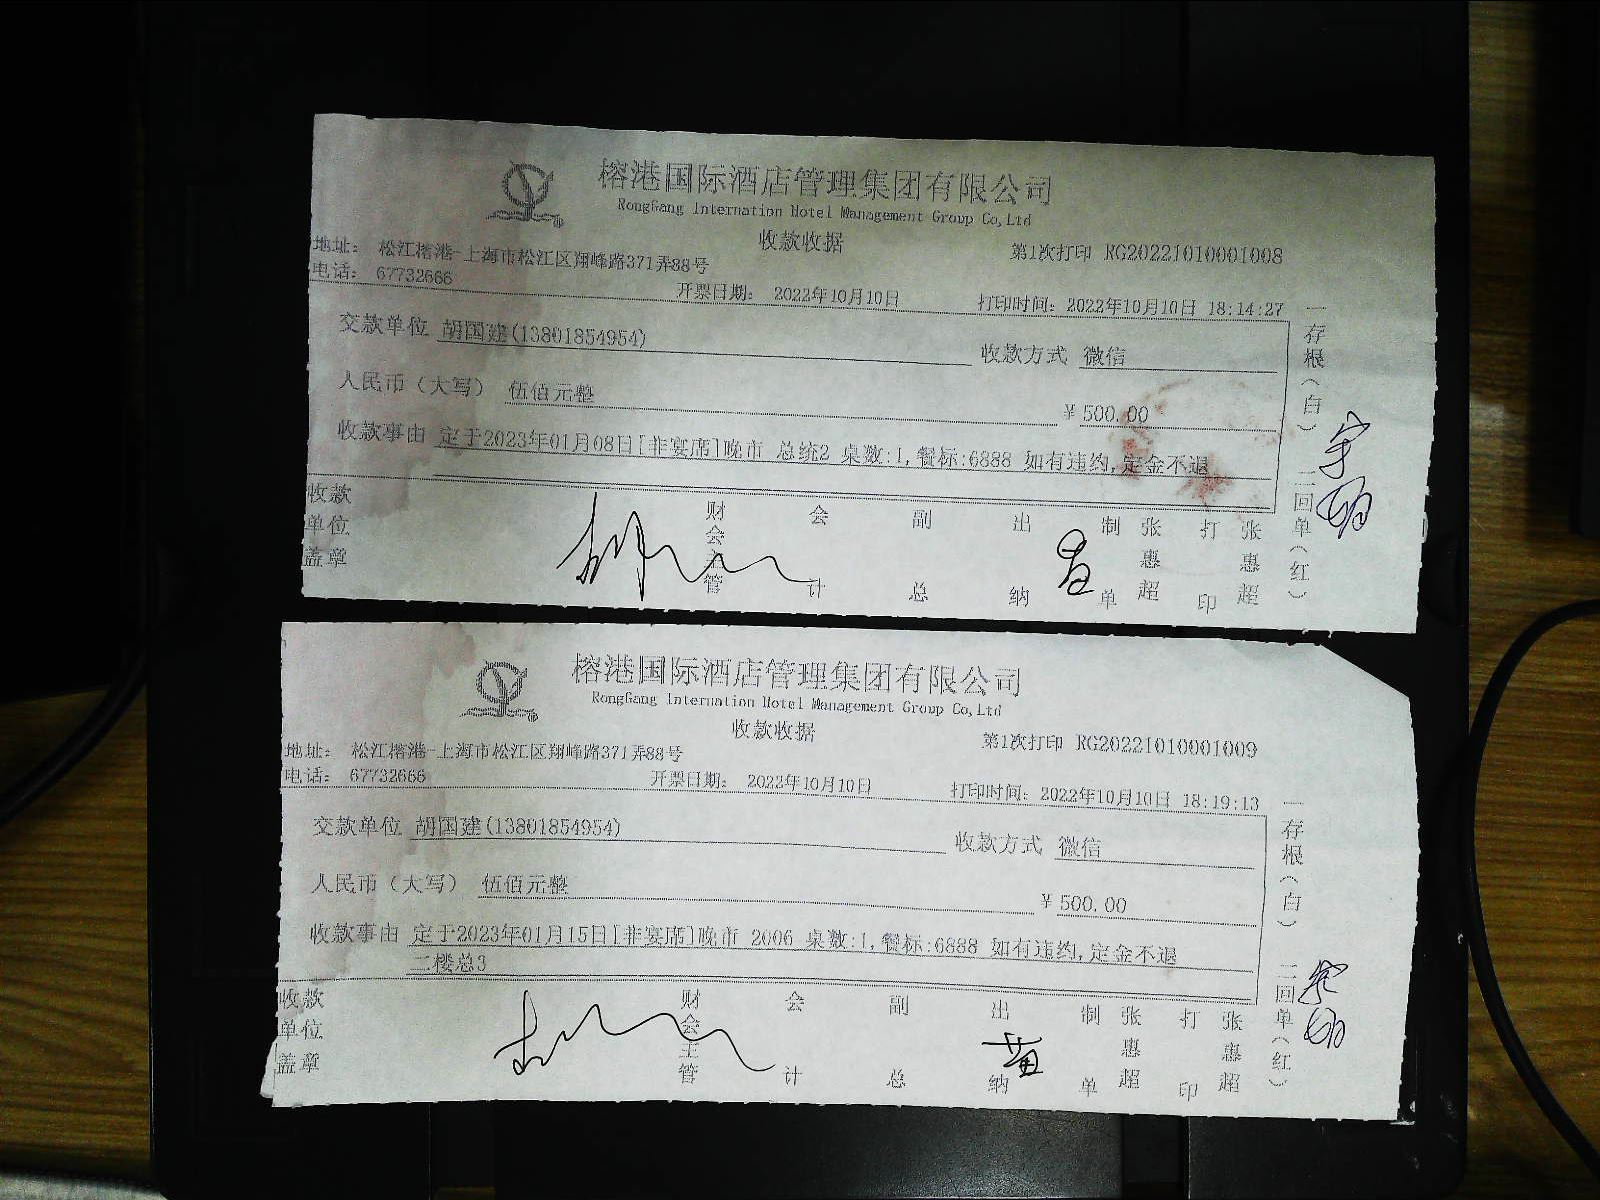 榕港国际酒店管理集团有限公司
RongGang Internation Hotel Management Group Co,Ltd
收款收据
第1次打印 RG20221010001008
地址： 松江榕港-上海市松江区翔峰路371弄88号
电话： 67732666
开票日期： 2022年10月10日
打印时间：2022年10月10日 18:14:27
交款单位 胡国建(13801854954)
收款方式 微信
人民币（大写） 伍佰元整
￥500.00
收款事由 定于2023年01月08日[非宴席]晚市 总统2 桌数:1,餐标:6888 如有违约,定金不退
收款单位盖章
财会主管
会计
副总
出纳
制单
张惠超
打印
张惠超
一存根（白）
二回单（红）
榕港国际酒店管理集团有限公司
RongGang Internation Hotel Management Group Co,Ltd
收款收据
第1次打印 RG20221010001009
地址： 松江榕港-上海市松江区翔峰路371弄88号
电话： 67732666
开票日期： 2022年10月10日
打印时间：2022年10月10日 18:19:13
交款单位 胡国建(13801854954)
收款方式 微信
人民币（大写） 伍佰元整
￥500.00
收款事由 定于2023年01月15日[非宴席]晚市 2006 桌数:1,餐标:6888 如有违约,定金不退
二楼总3
收款单位盖章
财会主管
会计
副总
出纳
制单
张惠超
打印
张惠超
一存根（白）
二回单（红）